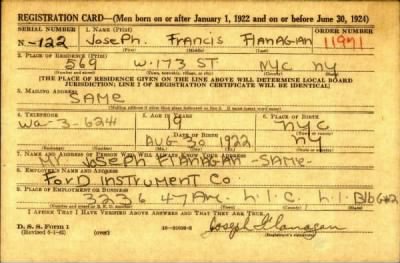 REGISTRATION CARD—(Men born on or after January 1, 1922 and on or before June 30, 1924)
SERIAL NUMBER 1. NAME (Print) ORDER NUMBER
N-122 Joseph. Francis Flanagan 11971
(First) (Middle) (Last)
2. PLACE OF RESIDENCE (Print)
569 W-173 ST NYC NY
(Number and street) (Town, township, village, or city) (County) (State)
[THE PLACE OF RESIDENCE GIVEN ON THE LINE ABOVE WILL DETERMINE LOCAL BOARD
JURISDICTION; LINE 2 OF REGISTRATION CERTIFICATE WILL BE IDENTICAL]
3. MAILING ADDRESS
SAME
(Mailing address if other than place indicated on line 2. If same insert word same)
4. TELEPHONE 5. AGE IN YEARS 6. PLACE OF BIRTH
Wa-3-624 19 NYC
DATE OF BIRTH
AUG 30 1922 NY
7. NAME AND ADDRESS OF PERSON WHO WILL ALWAYS KNOW YOUR ADDRESS
Mr Joseph Flanagan -SAME-
8. EMPLOYER'S NAME AND ADDRESS
Ford Instrument Co.
9. PLACE OF EMPLOYMENT OR BUSINESS
3236 47 Av. L.I.C. L.I. Bldg #2
(Number and street or R. F. D. number) (Town) (County) (State)
I AFFIRM THAT I HAVE VERIFIED ABOVE ANSWERS AND THAT THEY ARE TRUE.
D. S. S. Form 1
(Revised 6-1-42) Joseph Flanagan
(Registrant's signature)